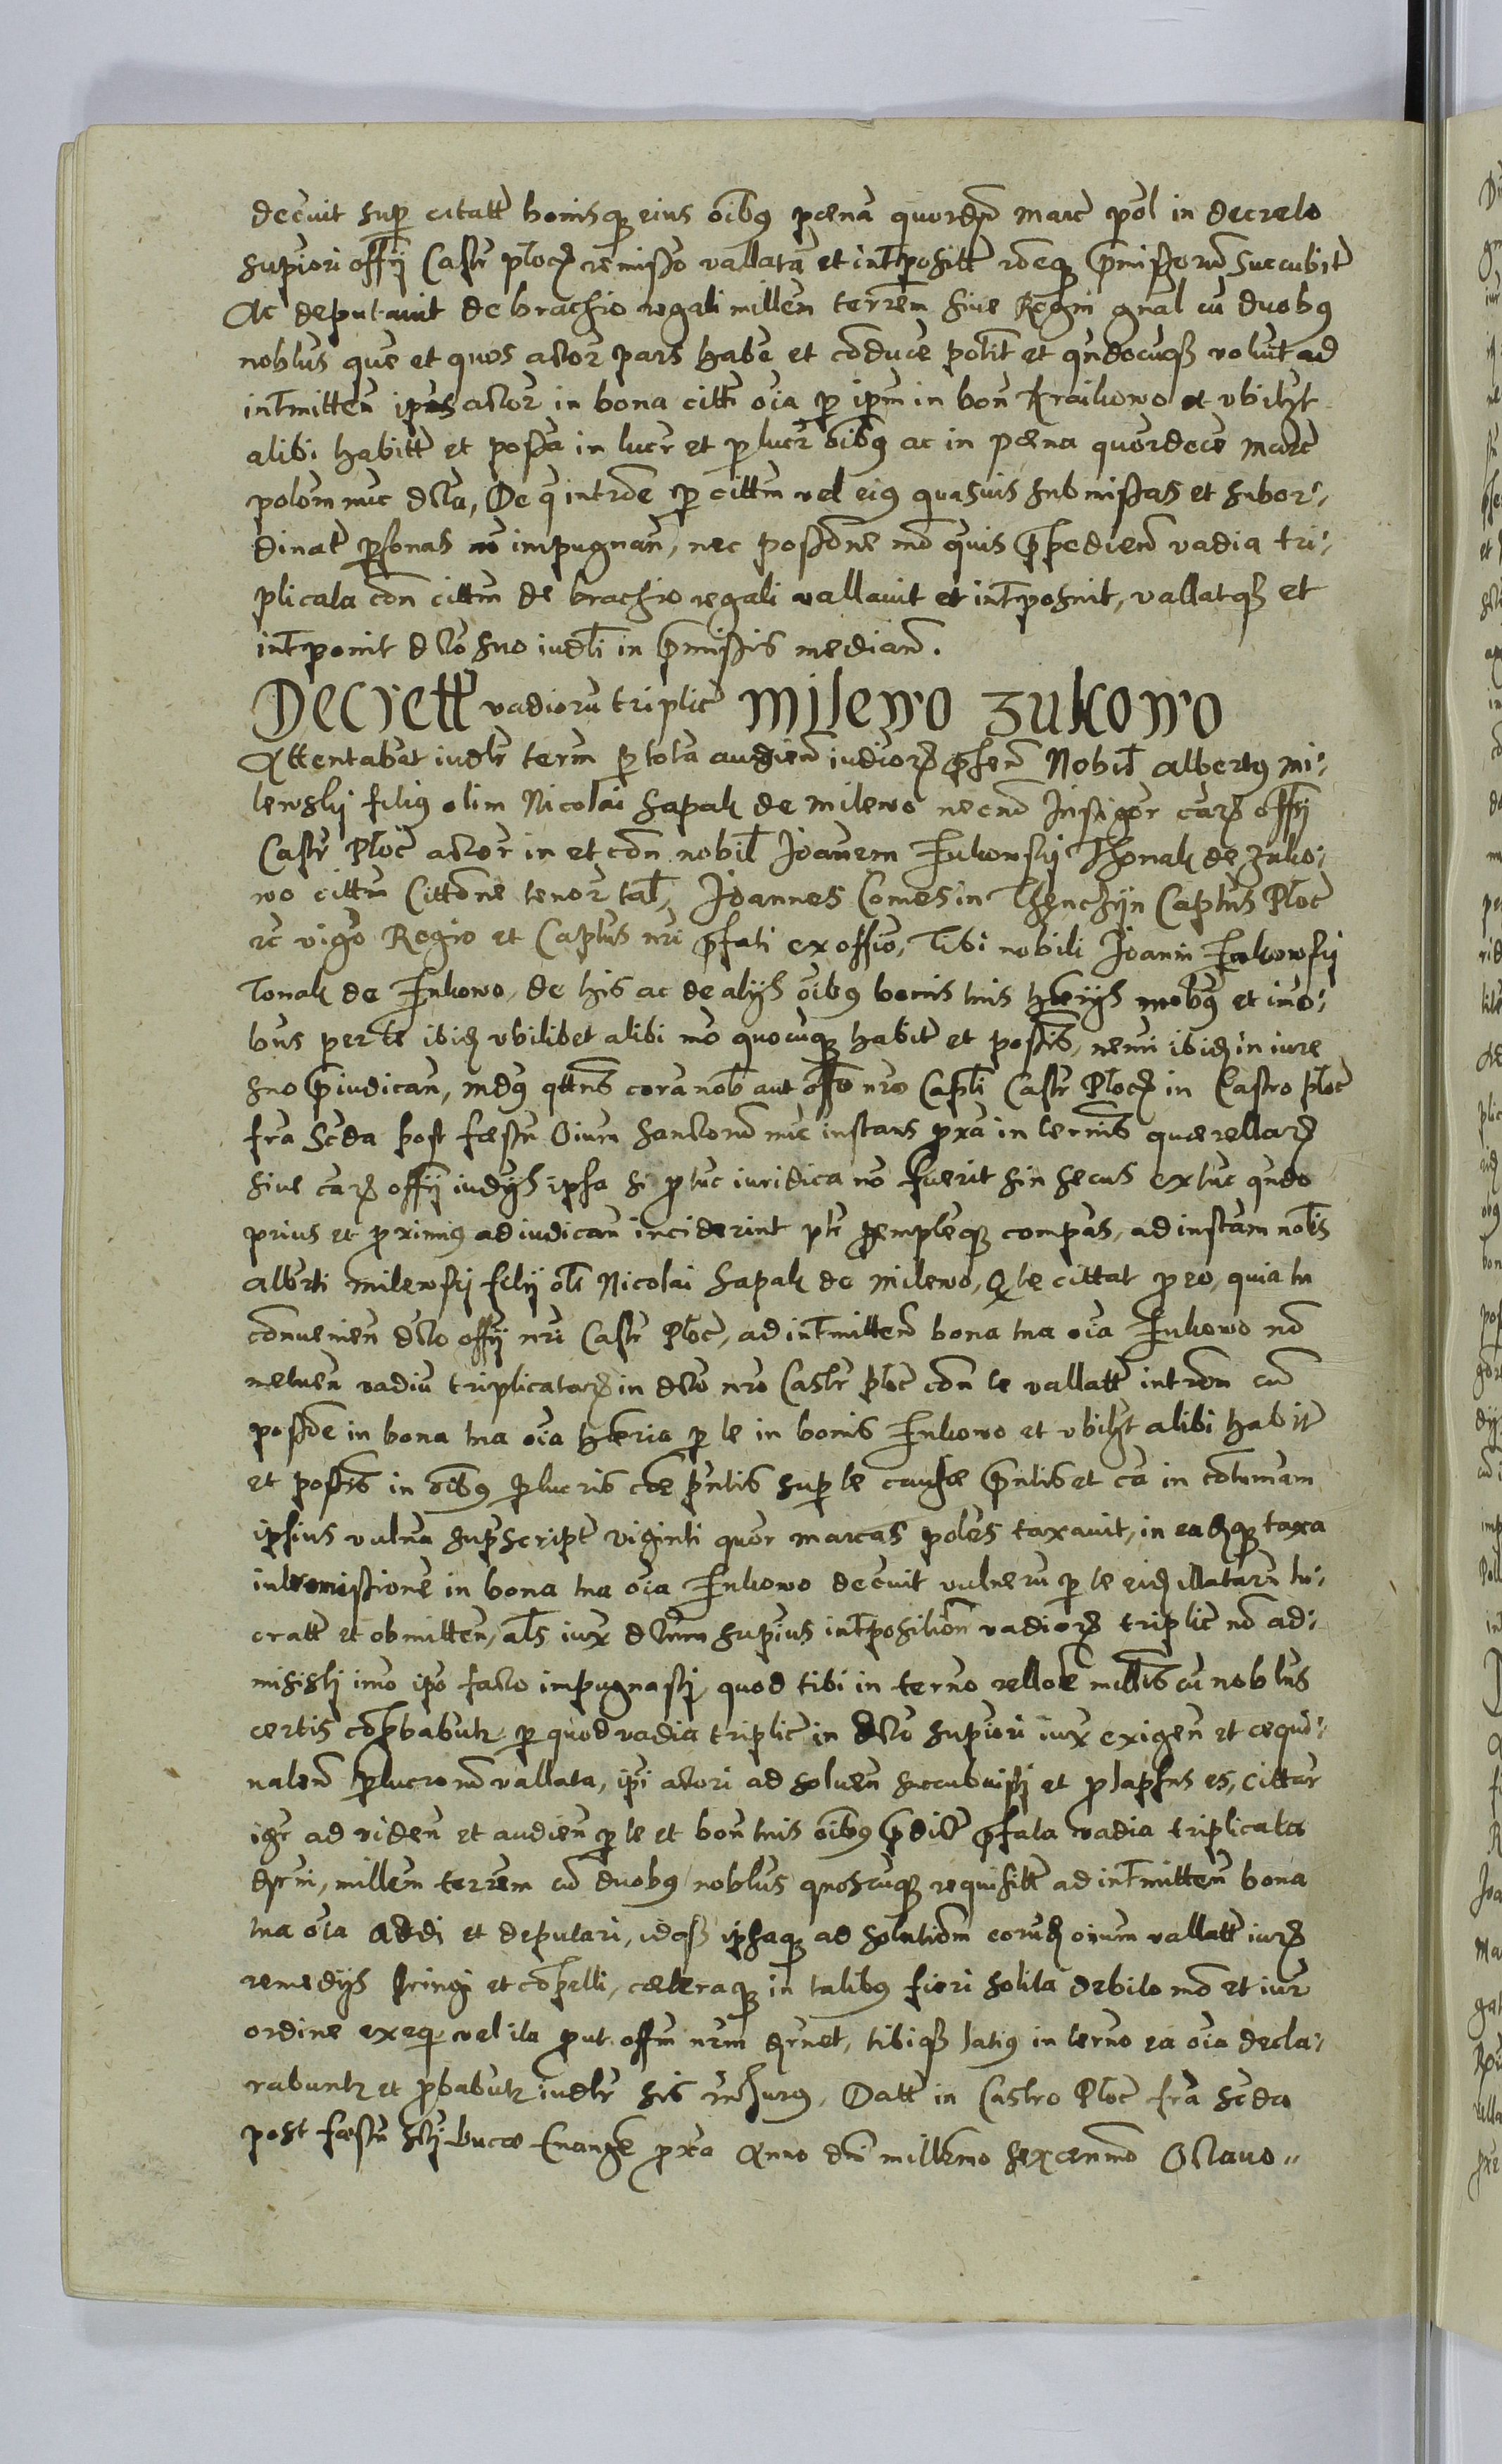 decuit sup citatt bonisq eius oibus poena quordn marc pol in decreto
supiori offy Castr ploc remisso vallata et intposittt ideq pmissorum succubit
Ac deputauit de brachio regali millem terrem siue Regni gnal cu duobus
noblus que et quos actor pars habe et conduce potit et qndocuqz volut ad
intmitten ipus actor in bona citti oia p ipm in bon Kraikowo et vbilzt
alibi habitt et possa in lucr et p lucr oibus ac in poena quordece marc
polom nuc dcta, De q intrde p cittm vel eius quasuis submissas et subor
dinat psonas no impugnan, nec possione mo quis ppedien vadia tri
plicata con cittm de brachio regali vallauit et intposuit, vallatqz et
intponit dcto suo iudli in pmissis median.
Decrett vadioru triplic Milewo Zukowo
Attentabat iudlr term p tota audien iudiorz psen Nobil albertus mi
lewsky filius olim Nicolai Sapak de milewo necno Instigor curz offy
Castr Ploc actor in et con nobil Joanem Zukowsky Thonak de Zuko
wo cittm Cittone tenor tal, Joannes Comes in Thenchyn Captus Ploc
rc vigo Regio et Captus nri pfati ex offio, Tibi nobili Joanni Zukowsky
Tonak de Zukowo, de his ac de alys oibus bonis tuis hteriys mobus et imo
bus per te ibid vbilibet alibi mo quocuq habit et possis, nemi ibid in iure
suo piudican, mdus qttns cora nob aut offo nro Capli Castr Ploc in Castro ploc
fra Scda post foestu Oium Sanctoru nuc instans pxa in termis quaerellarz
siue curz offy iudys ipsa si p tuc iuridica no fuerit sin secus ex tuc qndo
prius et proximus ad iudican inciderint pte pempteq compas, ad instam nobis
alberti milewsky fily oli Nicolai Sapak de milewo, Q te cittat p eo, quia tu
conuenien dcto offy nri Castr Ploc, ad intmitten bona tua oia Zukowo no
metuen vadiu triplicatarz in dcto nro Castr ploc con te vallatt intron cu
possde in bona tua oia hteria p te in bonis Zukowo et vbilzt alibi habit
et possis in oibus plucris coe pntis sup te causae pntis et ca in contumam
ipsius vulna supscript viginti quor marcas poles taxauit, in eadq taxa
intromissione in bona tua oia Zukowo decuit vulneru p te eid illataru lu
cratt et obmitten, als iux dctum supius intposition vadiorz triplic no ad
misisti imo ipo facto impugnasti quod tibi in terno rellone millis cu noblus
certis copbabutr p quod vadia triplic in dcto supiori iux exigen et aequi
nalen plucro no vallata, ipi actori ad soluen succubuisti et plapsus es, cittar
igr ad viden et audien p te et bon tuis oibus pdict pfata vadia triplicata
dcrni, millem terrem cu duobus noblus quoscuq requisitt ad intmitten bona
tua oia addi et deputari, idqz ipsaq ad solution eorud oium vallatt iurz
remedys stringi et copelli, caeteraq in talibus fieri solita debito mo et iur
ordine exeq vel ita put offm nrm dcrnet, tibiqz latius in terno ea oia decla
rabuntr et pbabutr iudlr sis Datt in Castro Ploc fra Scda
post foestu Scti Lucae Euangte pxa Anno dni millemo sexcenmo Octauo